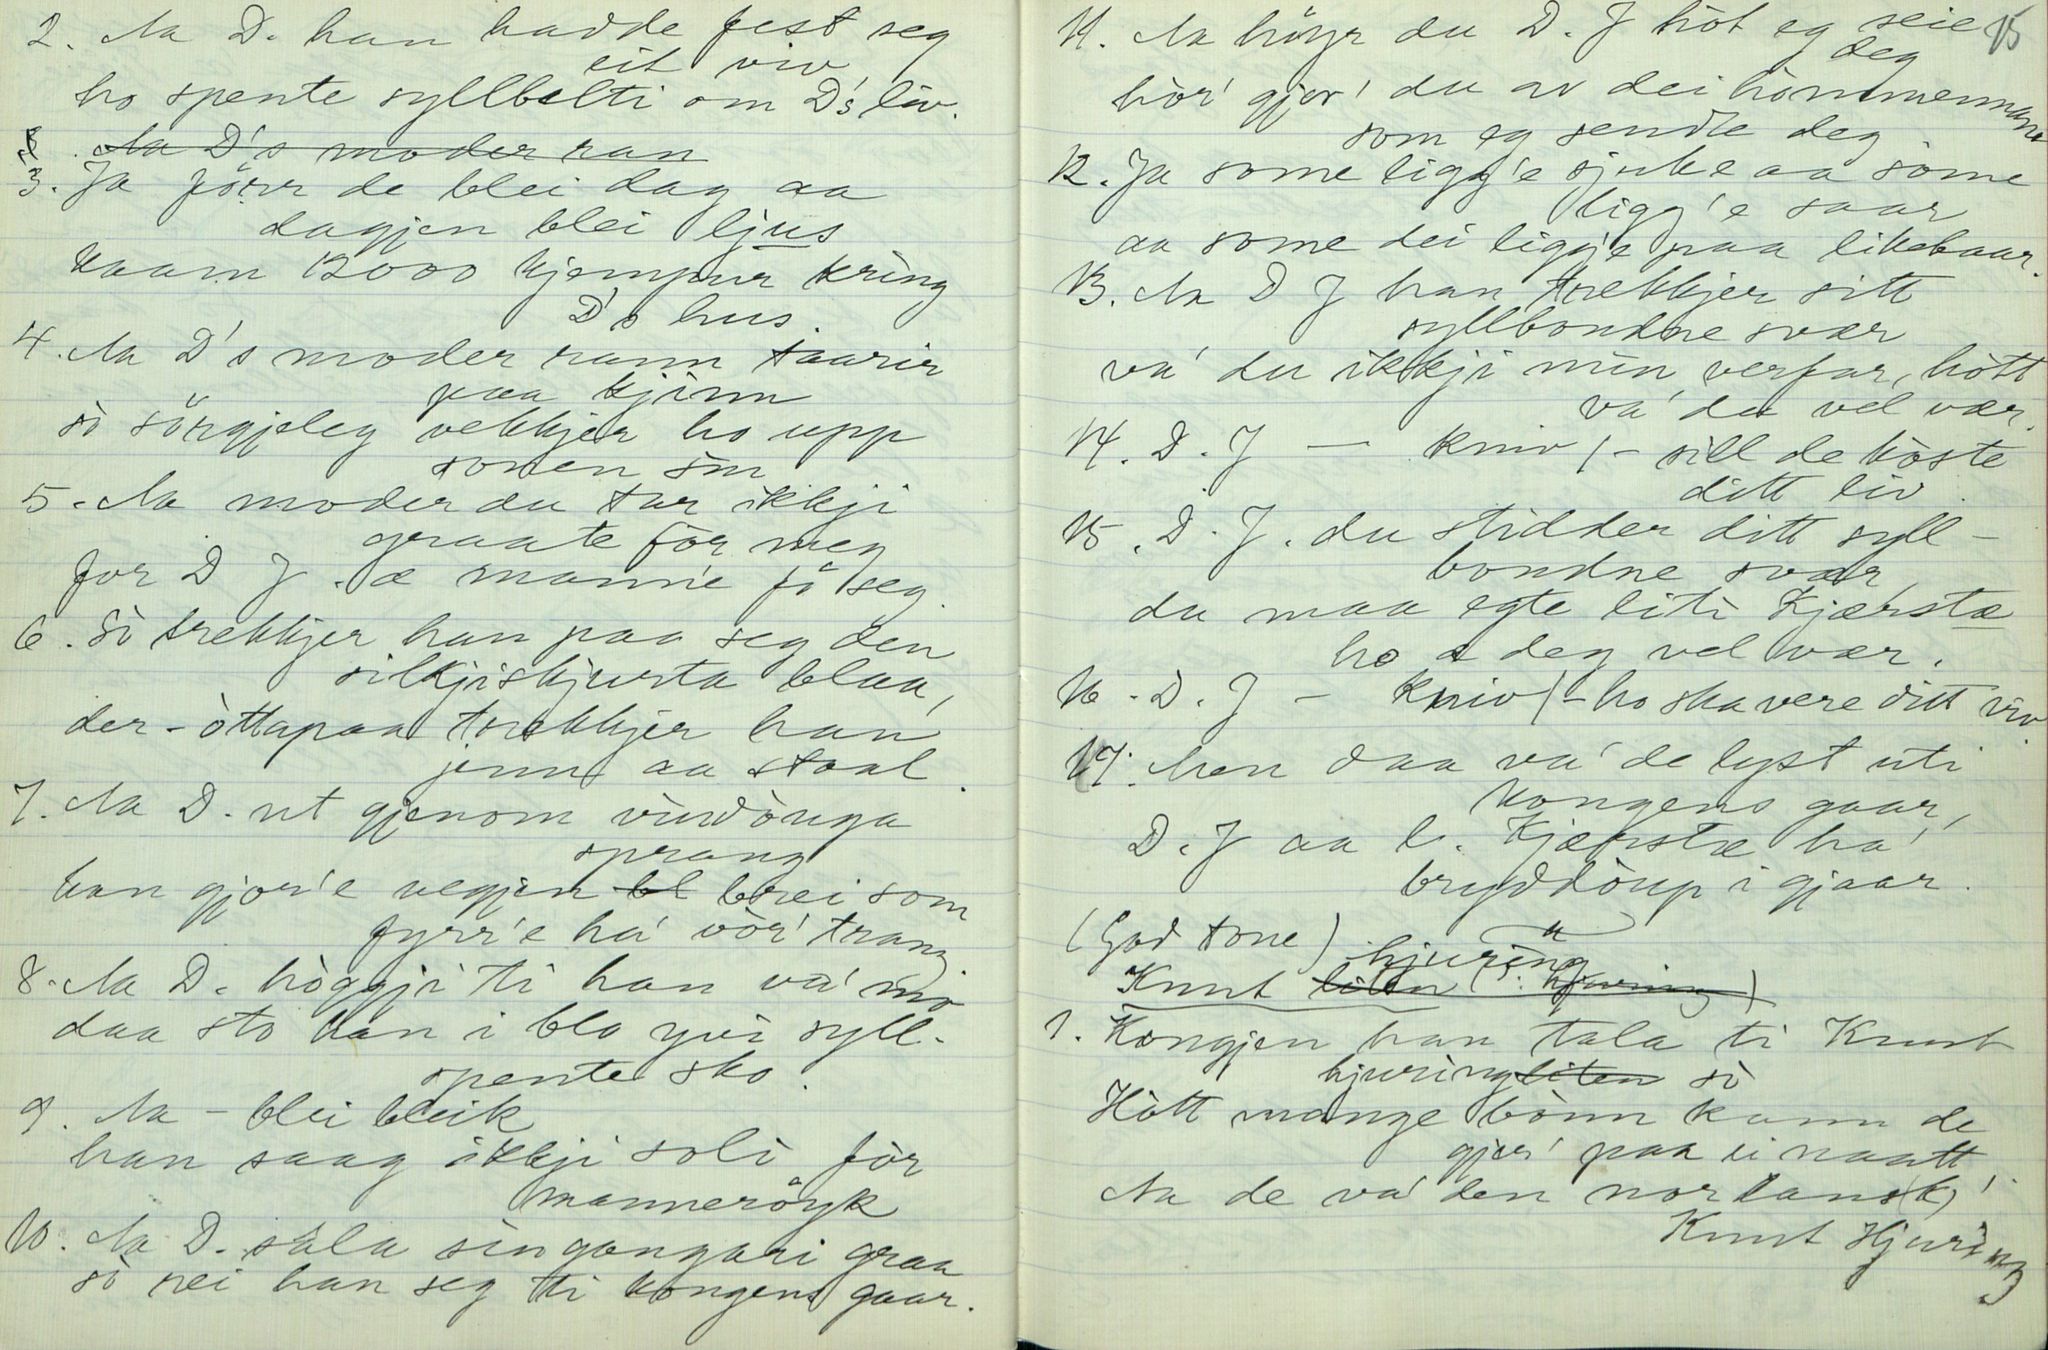 2. Aa D. han hadde fest seg
eit viv
ho spente syllbelti om D's liv.
Aa D's moder ran
3. Ja förr de blei dag aa
dagjen blei ljus
kaam 12000 kjempur kring
D's hus.
4. Aa D's moder rann taarir
paa kjinn
sò sörgjeleg vekkjer ho upp
sonen sin
5. Aa moder du tar ikkji
graate fòr meg
for D J. æ mann'e fò seg.
6. Sò trekkjer han paa seg den
silkjiskjurta blaa,
der-òttapaa trekkjer han
jenn aa staal.
7. Aa D. ut gjenom vindòuga
sprang
han gjor'e vegjen bl brei som
fyrr'e ha' vòr' trang
8. Aa D. hòggji ti han va' mo
daa sto han i blo yvi syll-
spente sko.
9. Aa – blei bleik
han saag ikkji soli fòr
manneröyk
10. Aa D. sala sin gangari graa
sò rei han seg ti kongens gaar.
15
11. Aa höyr du D. J hòt eg seie
deg
hòr' gjor' du av dei hòmmenmann
som eg sendte deg
12. Ja some ligg'e sjuke aa some
ligg'e saar
aa some dei liggje paa likebaar.
13. Aa D J han trekkjer sitt
syllbondne svær
va' du ikkji min verfar, hòtt
va' du vel vær.
14. D. J — kniv / – sill de kòste
ditt liv.
15. D. J. du stidder ditt syll-
bondne svær,
du maa egte liti Kjærstæ
ho æ deg vel vær.
16. D. J – kniv / – ho ska vere ditt viv.
17. Men daa va' de lyst uti
kongens gaar,
D. J aa l. Kjærstæ ha'
bryddòup i gjaar.
(God tone) hjuring
Knut liten (s. hjuring)
1. Kongjen han tala ti Knut
hjuring liten sò
Hòtt mange bònn kann de
gjer' paa ei naatt
Aa de va' den norlans(k)'
Knut Hjuring